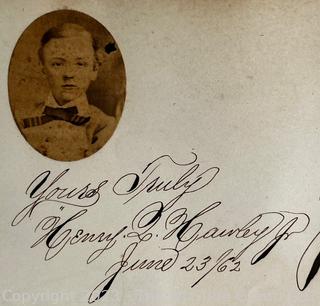 Yours Truly
Henry. L. Hawley Jr
June 23/62